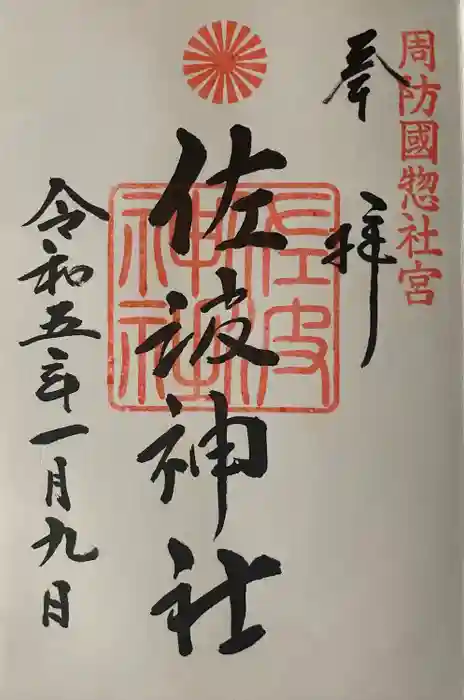 周防國惣社宮
奉拝
佐波神社
佐波神社
令和五年一月九日